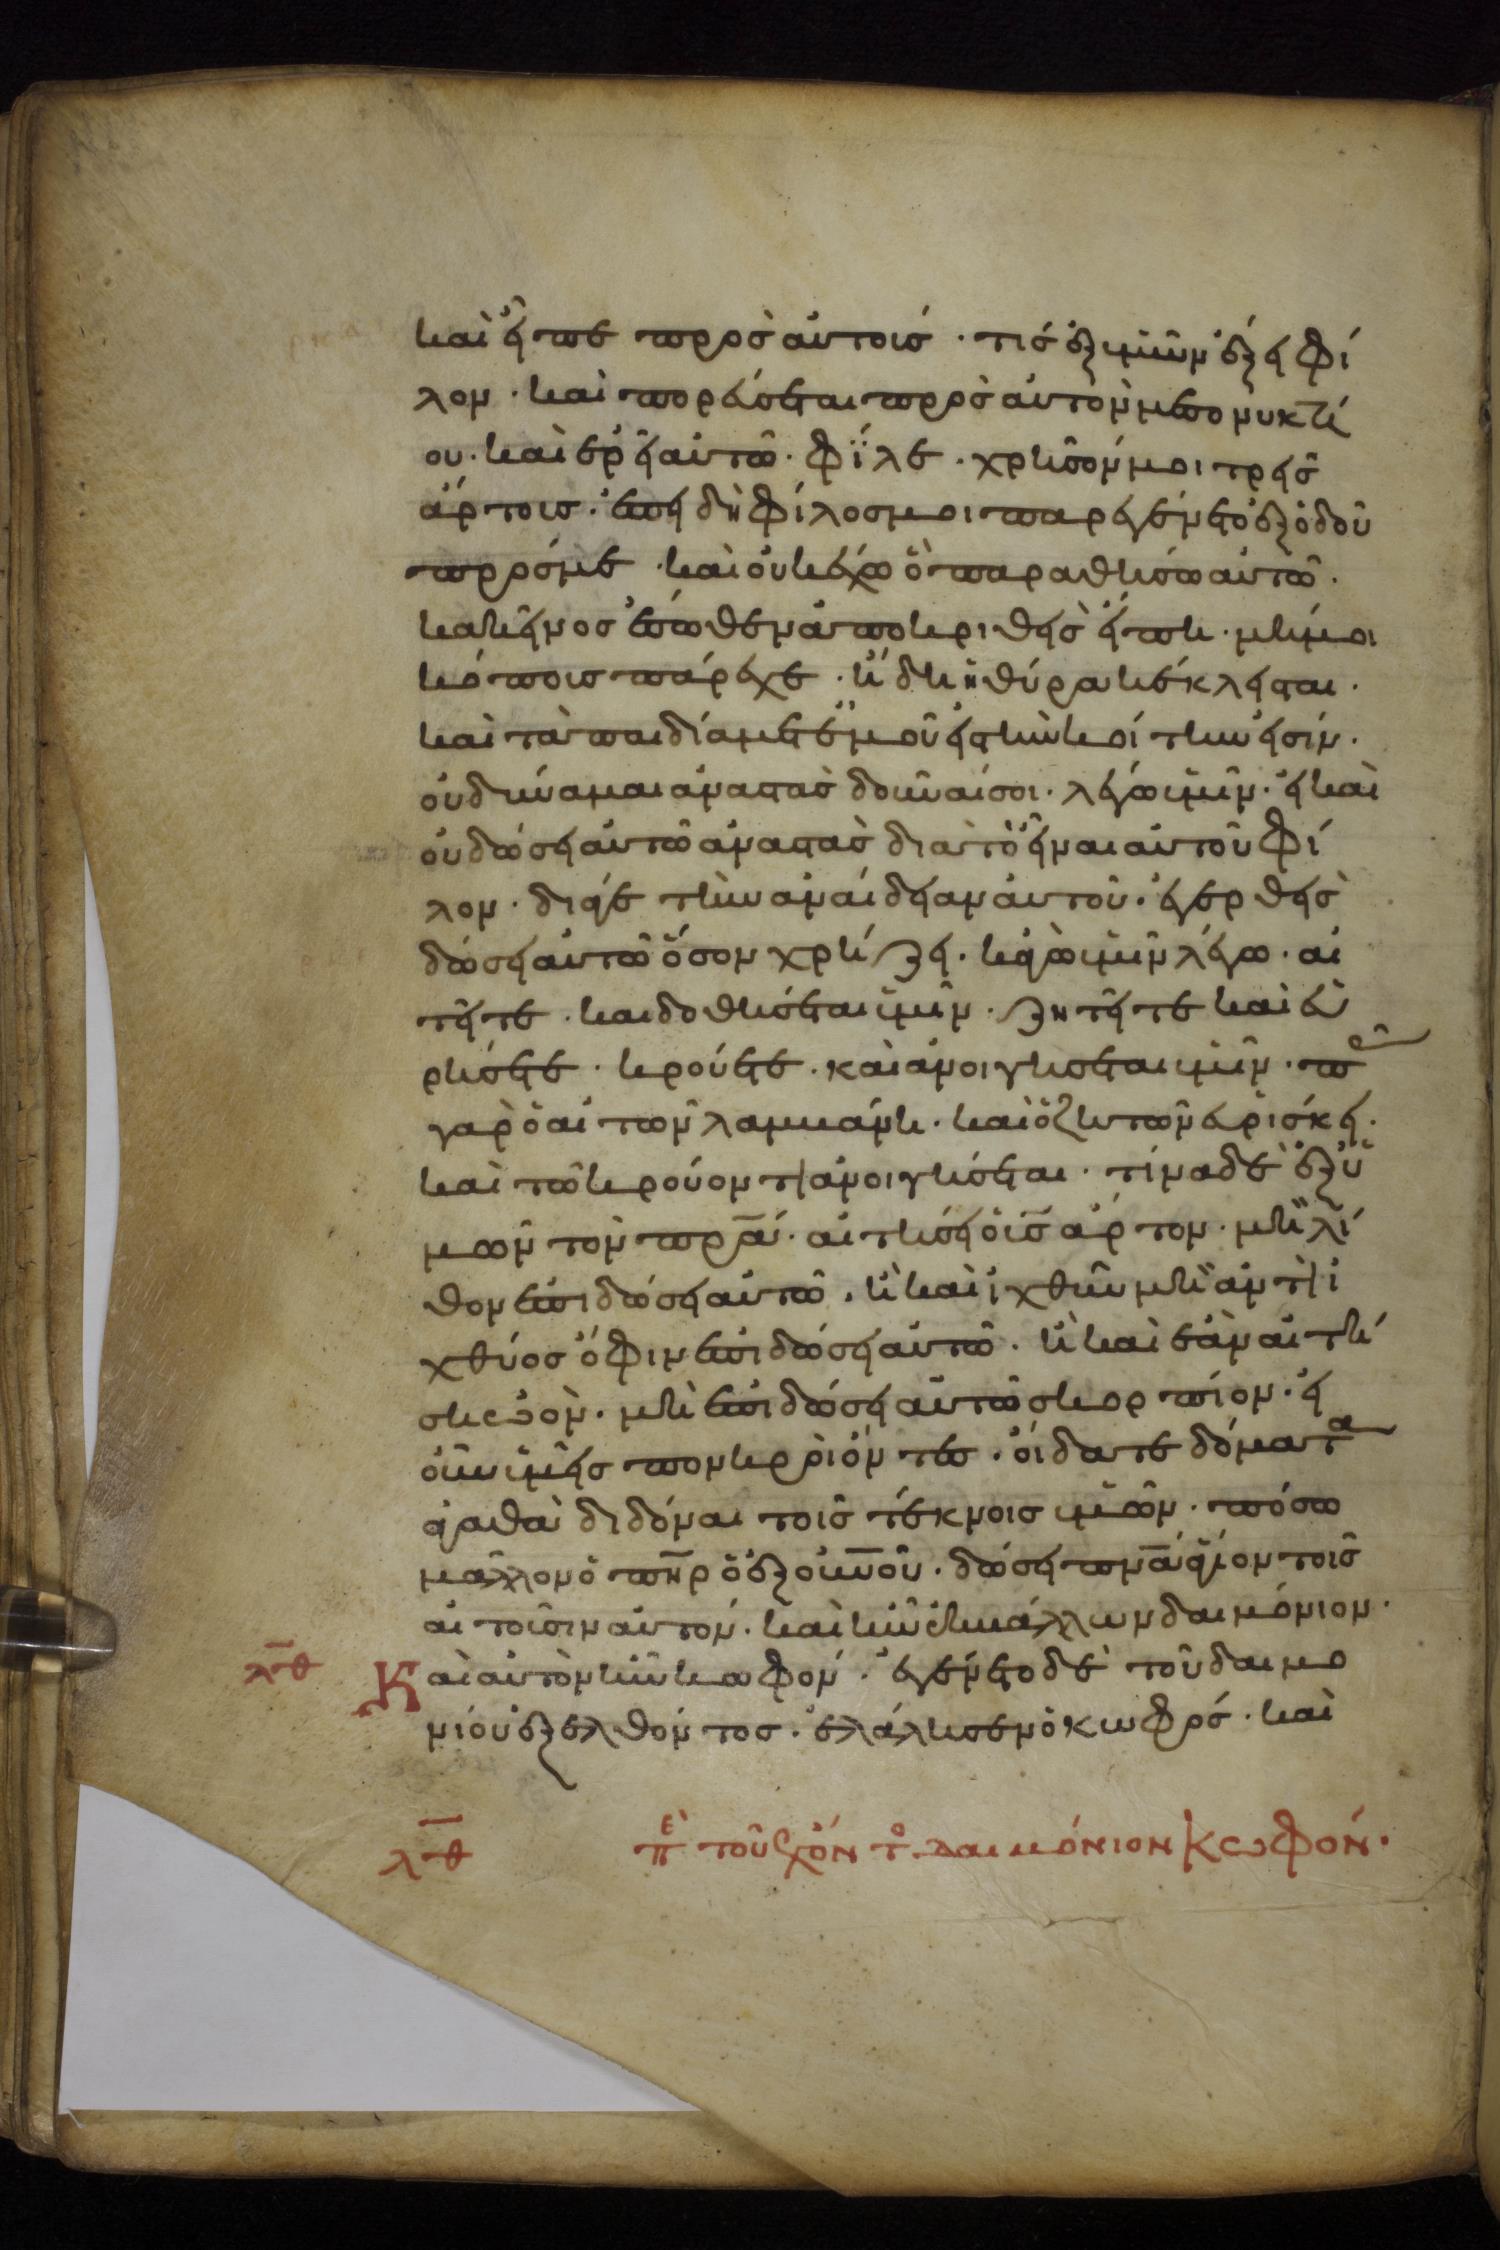 καὶ εἶπε πρὸς αὐτούς · τίς ἐξ ὑμῶν ἕξει φί
λον · καὶ πορεύσεται πρὸς αὐτὸν μεσονυκτί
ου · καὶ ἐρεῖ αὐτῶ · φίλε · χρῆσόν μοι τρεῖς
ἄρτους · ἐπειδὴ φίλος μοι παρεγένετο ἐξ ὁδοῦ
πρός με · καὶ οὐκ ἔχω ὃ παραθήσω αὐτῶ ·
κακεῖνος ἔσωθεν ἀποκριθεὶς εἴπη · μή μοι
κόπους πάρεχε · ἤδη ἡ θύρα κέκλεισται ·
καὶ τὰ παιδία μετ' ἐμοῦ εἰς τὴν κοίτην εἰσίν ·
οὐ δύναμαι ἀναστὰς δοῦναί σοι · λέγω ὑμῖν · εἰ καὶ
οὐ δώσει αὐτῶ ἀναστὰς διὰ τὸ εἶναι αὐτοῦ φί
λον · διά γε τὴν ἀναίδειαν αὐτοῦ · ἐγερθεὶς
δώσει αὐτῶ ὅσον χρήζει · κἀγὼ ὑμῖν λέγω · αἰ
τεῖτε · καὶ δοθήσεται ὑμῖν · ζητεῖτε καὶ εὑ
ρήσετε · κρούετε · καὶ ἀνοιγήσεται ὑμῖν · πᾶς
γὰρ ὁ αἰτῶν λαμβάνει · καὶ ὁ ζητῶν εὑρίσκει ·
καὶ τῶ κρούοντι ἀνοιγήσεται · τίνα δὲ ἐξ ὑ
μῶν τὸν πρα · αἰτήσει ὁ υἱς ἄρτον · μὴ λί
θον ἐπιδώσει αὐτῶ · ἢ καὶ ἰχθῦν μὴ ἀντὶ ἰ
χθύος ὄφιν ἐπιδώσει αὐτῶ · ἢ καὶ ἐὰν αἰτή
ση ὠόν · μὴ ἐπιδώσει αὐτῶ σκορπίον · εἰ
οὖν ὑμεῖς πονηροὶ ὄντες · οἴδατε δόματα
ἀγαθὰ διδόναι τοῖς τέκνοις ὑμῶν · πόσω
μᾶλλον ὁ πηρ ὁ ἐξ οὐνοῦ · δώσει πνα ἅγιον τοῖς
αἰτοῦσιν αὐτόν · καὶ ἦν ἐκβάλλων δαιμόνιον ·
λθ Καὶ αὐτὸ ἦν κωφόν · ἐγένετο δὲ τοῦ δαιμο
νίου ἐξελθόντος · ἐλάλησεν ὁ κωφός · καὶ
λθ πε τοῦ ἔχον τ δαιμόνιον κωφόν ·